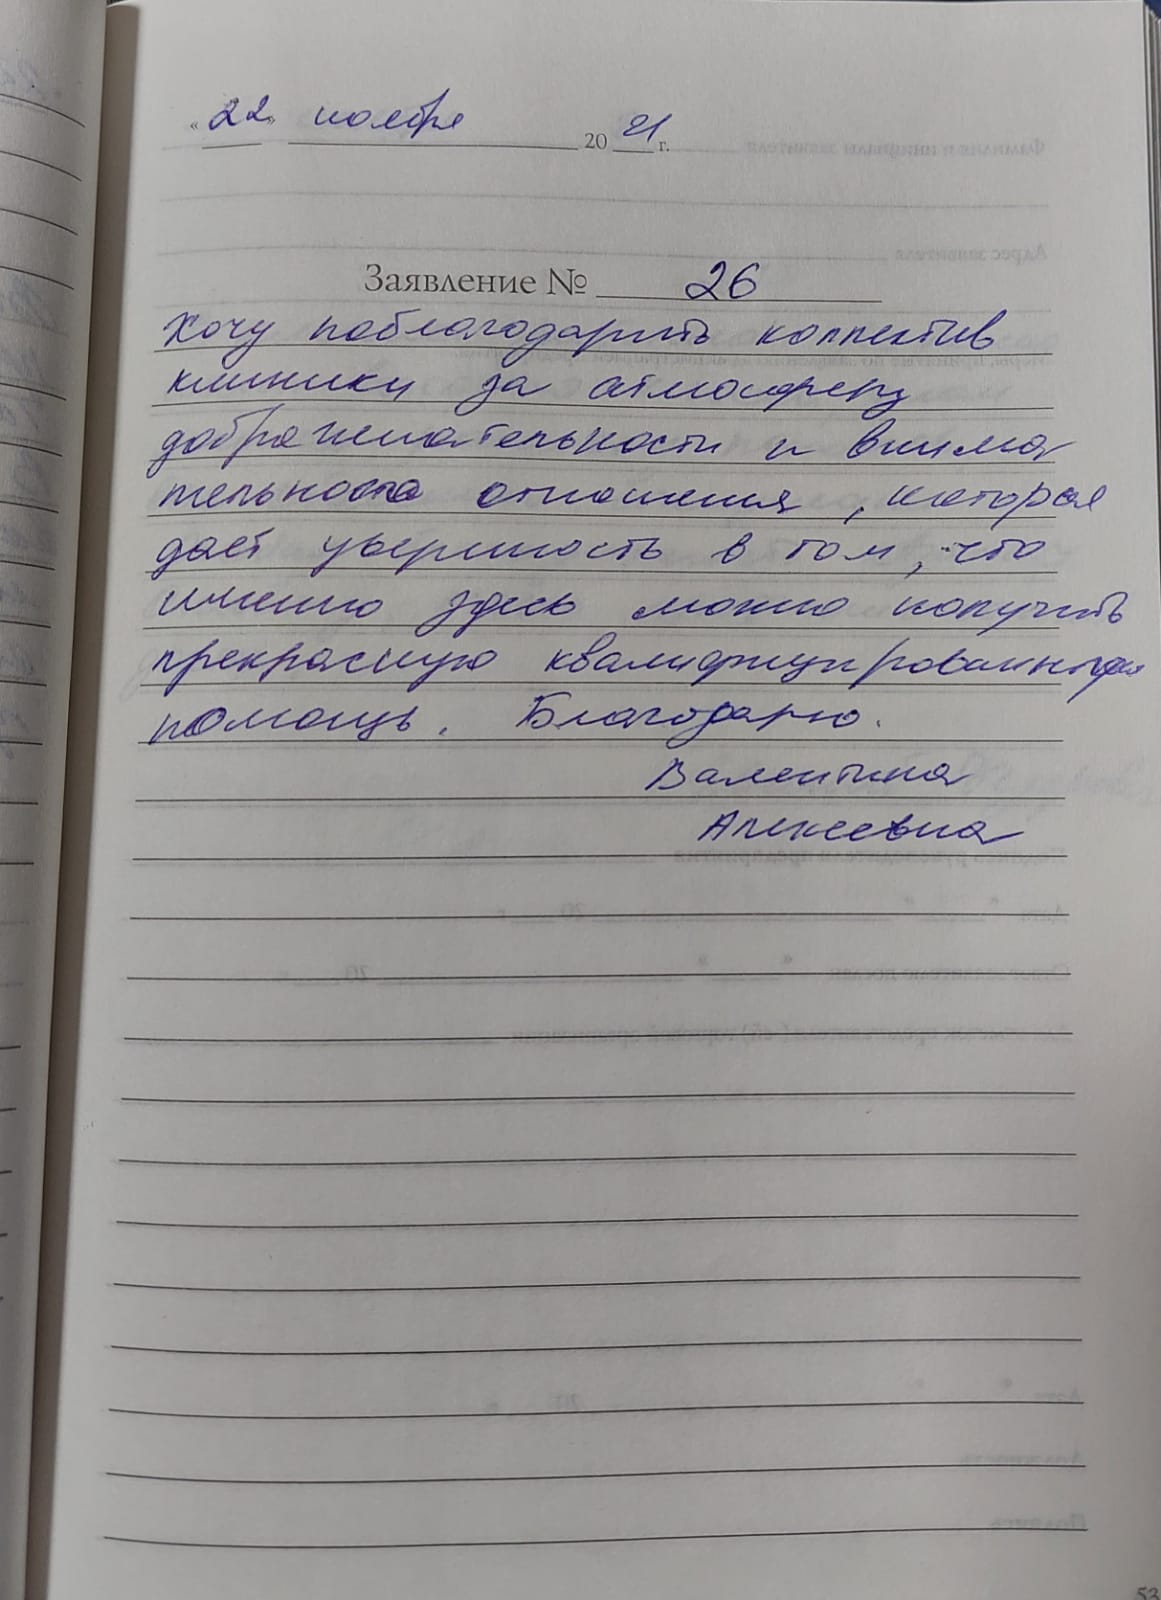 « 22 » ноября 20 21 г.
Заявление № 26
Хочу поблагодарить коллектив
клиники за атмосферу
доброжелательности и внима
тельного отношения, которая
дает уверенность в том, что
именно здесь можно получить
прекрасную квалифицированную
помощь. Благодарю.
Валентина
Алексеевна
53